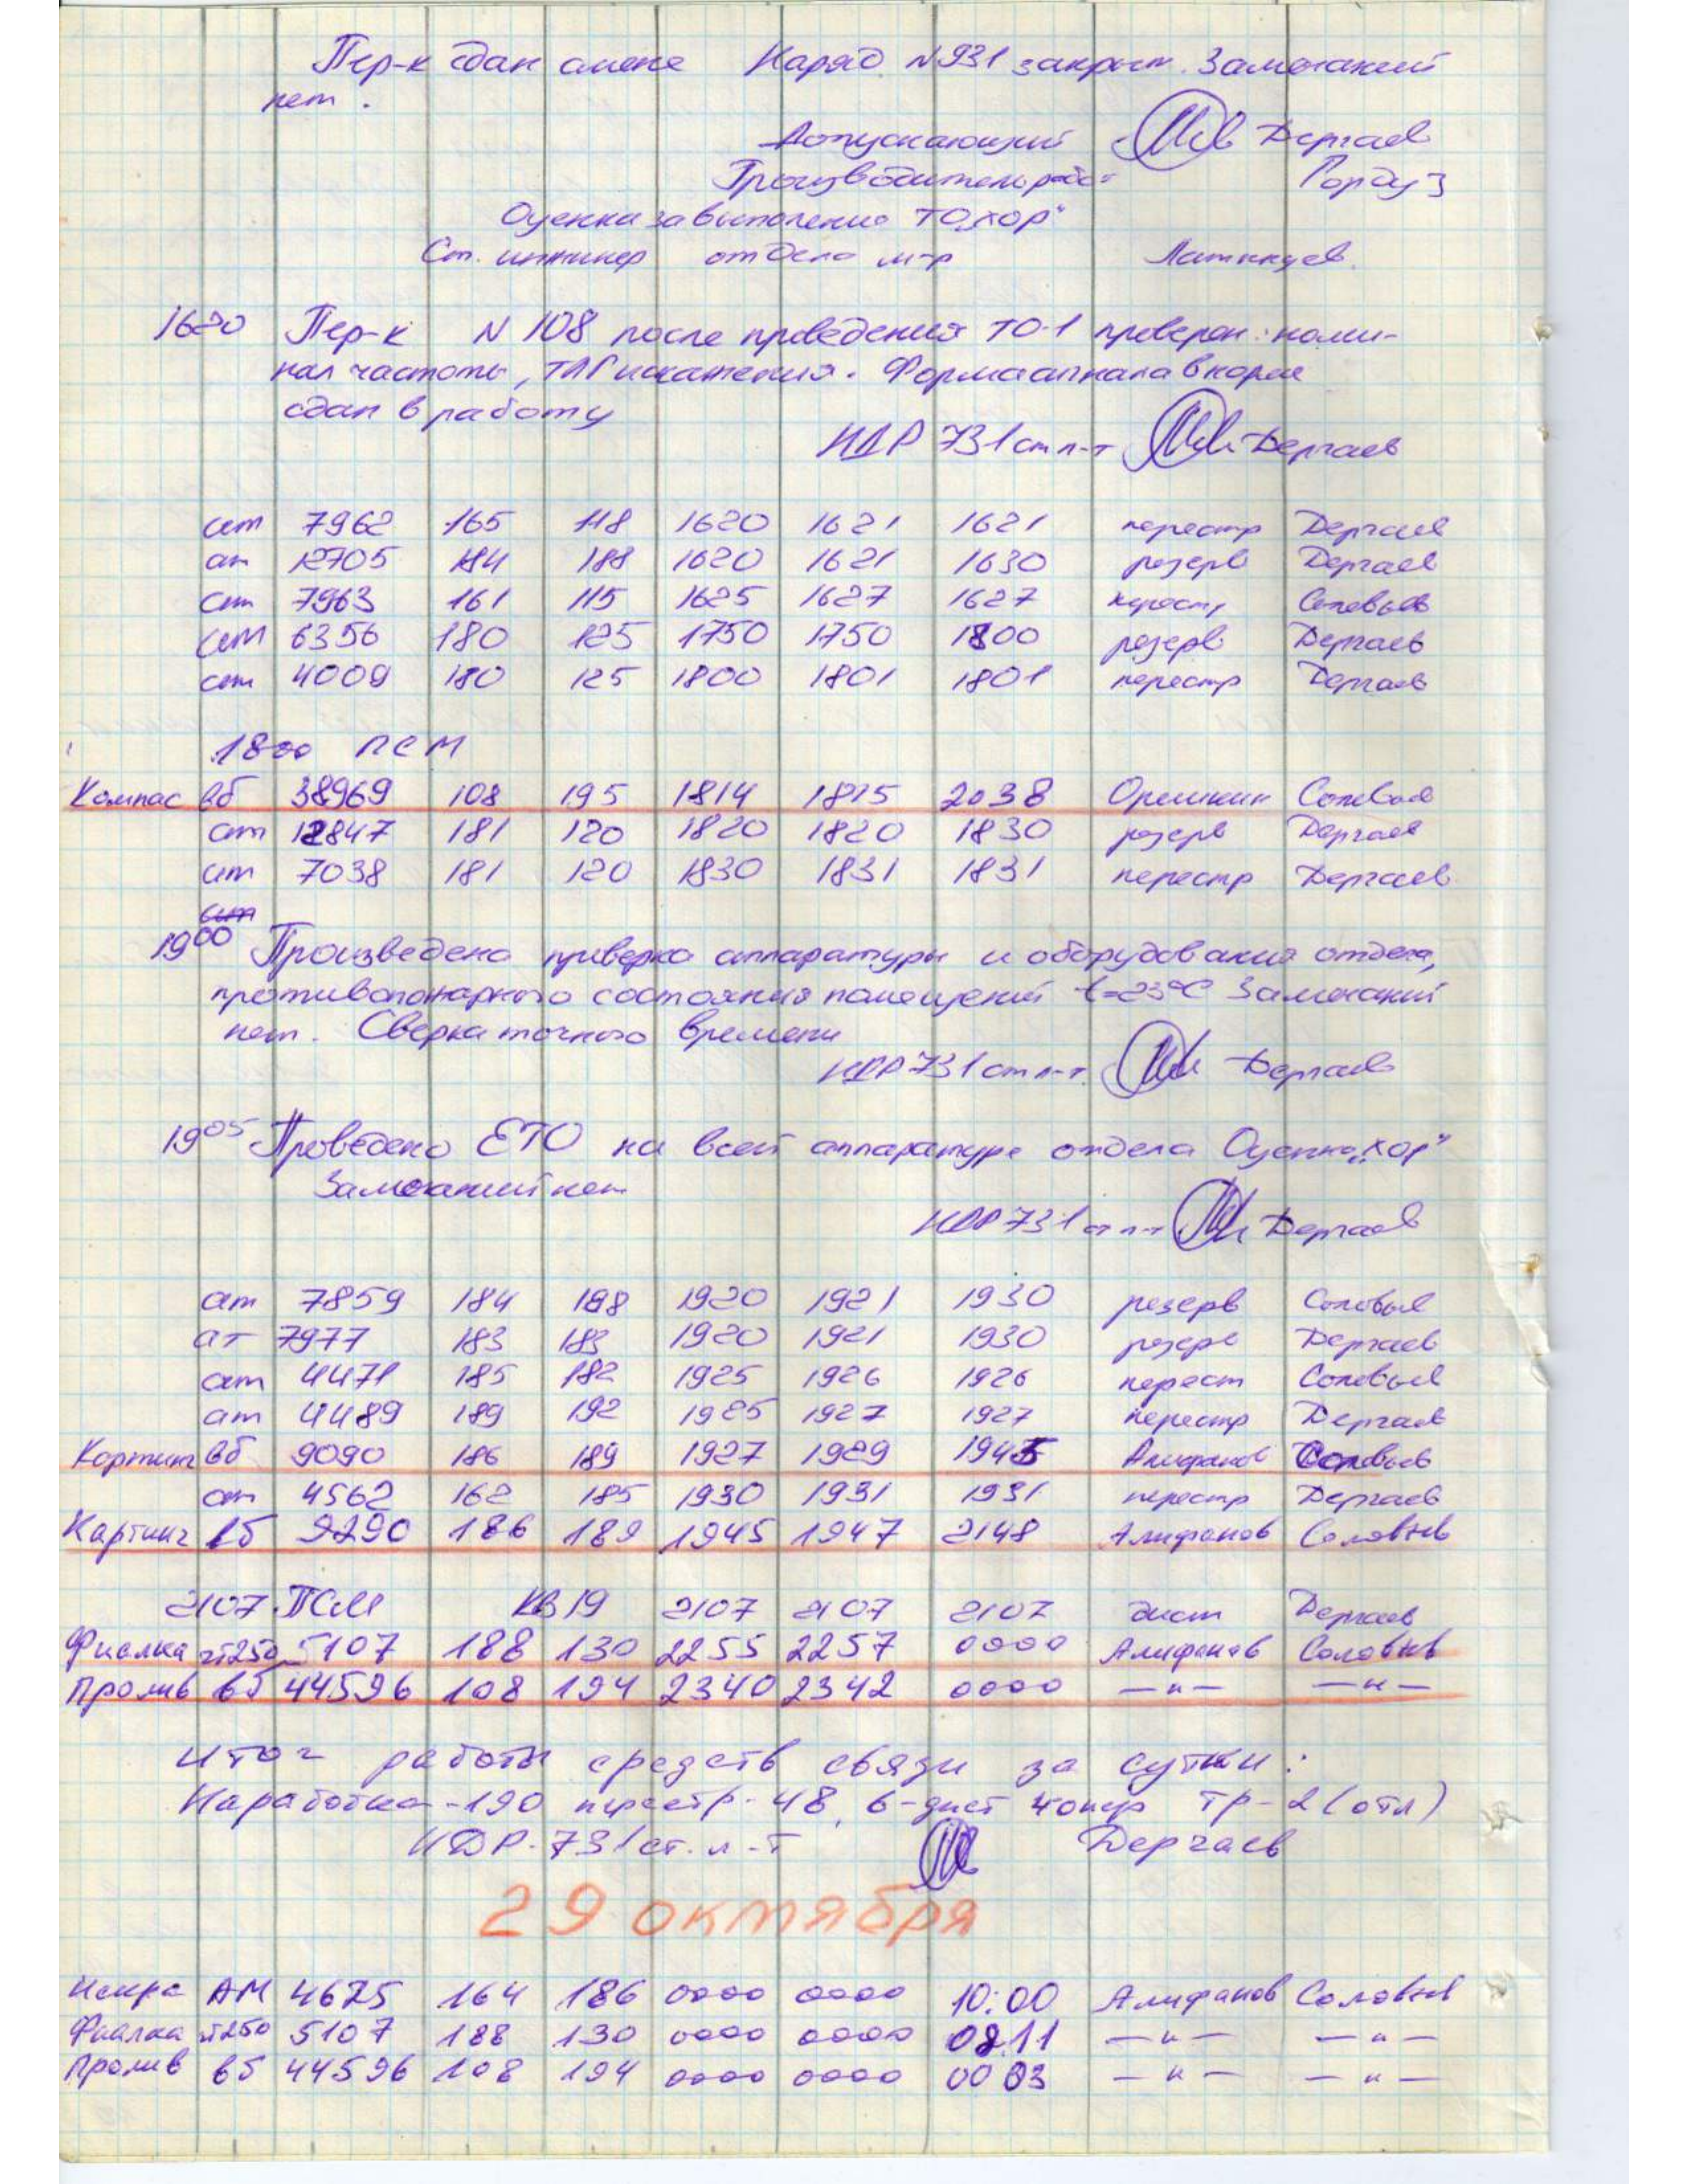 Пер-к сдан смене Наряд N931 закрыт. Замечаний
нет.
Допускающий Дергаев
Производитель работ
Оценка за выполнение ТО "хор"
Ст. инженер отдела м-р
16 20 Пер-к N 108 после проведения ТО-1 проверен: номи-
нал частоты, искажения. Форма сигнала в норме
сдан в работу
НДР 731 ст л-т Дергаев
7962 165 118 1620 1621 1621 перестр Дергаев
12705 184 188 1620 1621 1630 резерв Дергаев
7963 161 115 1625 1627 1627 перестр Соловьев
6356 180 125 1750 1750 1800 резерв Дергаев
4009 180 125 1800 1801 1801 перестр Дергаев
1800 ПСМ
Компас вб 38969 108 195 1814 1815 2038 Орешкин Соловьев
ат 12847 181 120 1820 1820 1830 резерв Дергаев
ат 7038 181 120 1830 1831 1831 перестр Дергаев
19 00 Произведена проверка аппаратуры и оборудования отдела,
противопожарного состояния помещений t=23°C Замечаний
нет. Сверка точного времени
НДР 731 ст л-т Дергаев
19 05 Проведено ЕТО на всей аппаратуре отдела Оценка „хор"
Замечаний нет
НДР 731 ст л-т Дергаев
ат 7859 184 188 1920 1921 1930 резерв Соловьев
ат 7977 183 183 1920 1921 1930 резерв Дергаев
ат 4471 185 182 1925 1926 1926 перест Соловьев
ат 4489 189 192 1925 1927 1927 перестр Дергаев
Картинг вб 9090 186 189 1927 1929 1945 Алифанов Соловьев
ат 4562 162 185 1930 1931 1931 перестр Дергаев
Картинг вб 9290 186 189 1945 1947 2148 Алифанов Соловьев
2107 ПСМ КВ19 2107 2107 2107 дист Дергаев
Фиалка чт250 5107 188 130 2255 2257 0000 Алифанов Соловьев
Пролив вб 44596 108 194 2340 2342 0000 —"— —"—
Итог работы средств связи за сутки:
Наработка-190 перестр-48, 6-дист 4опер тр-2 (отл)
НДР-731 ст. л-т Дергаев
29 октября
Искра АМ 4675 164 186 0000 0000 10:00 Алифанов Соловьев
Фиалка чт250 5107 188 130 0000 0000 0811 —"— —"—
Пролив вб 44596 108 194 0000 0000 0003 —"— —"—